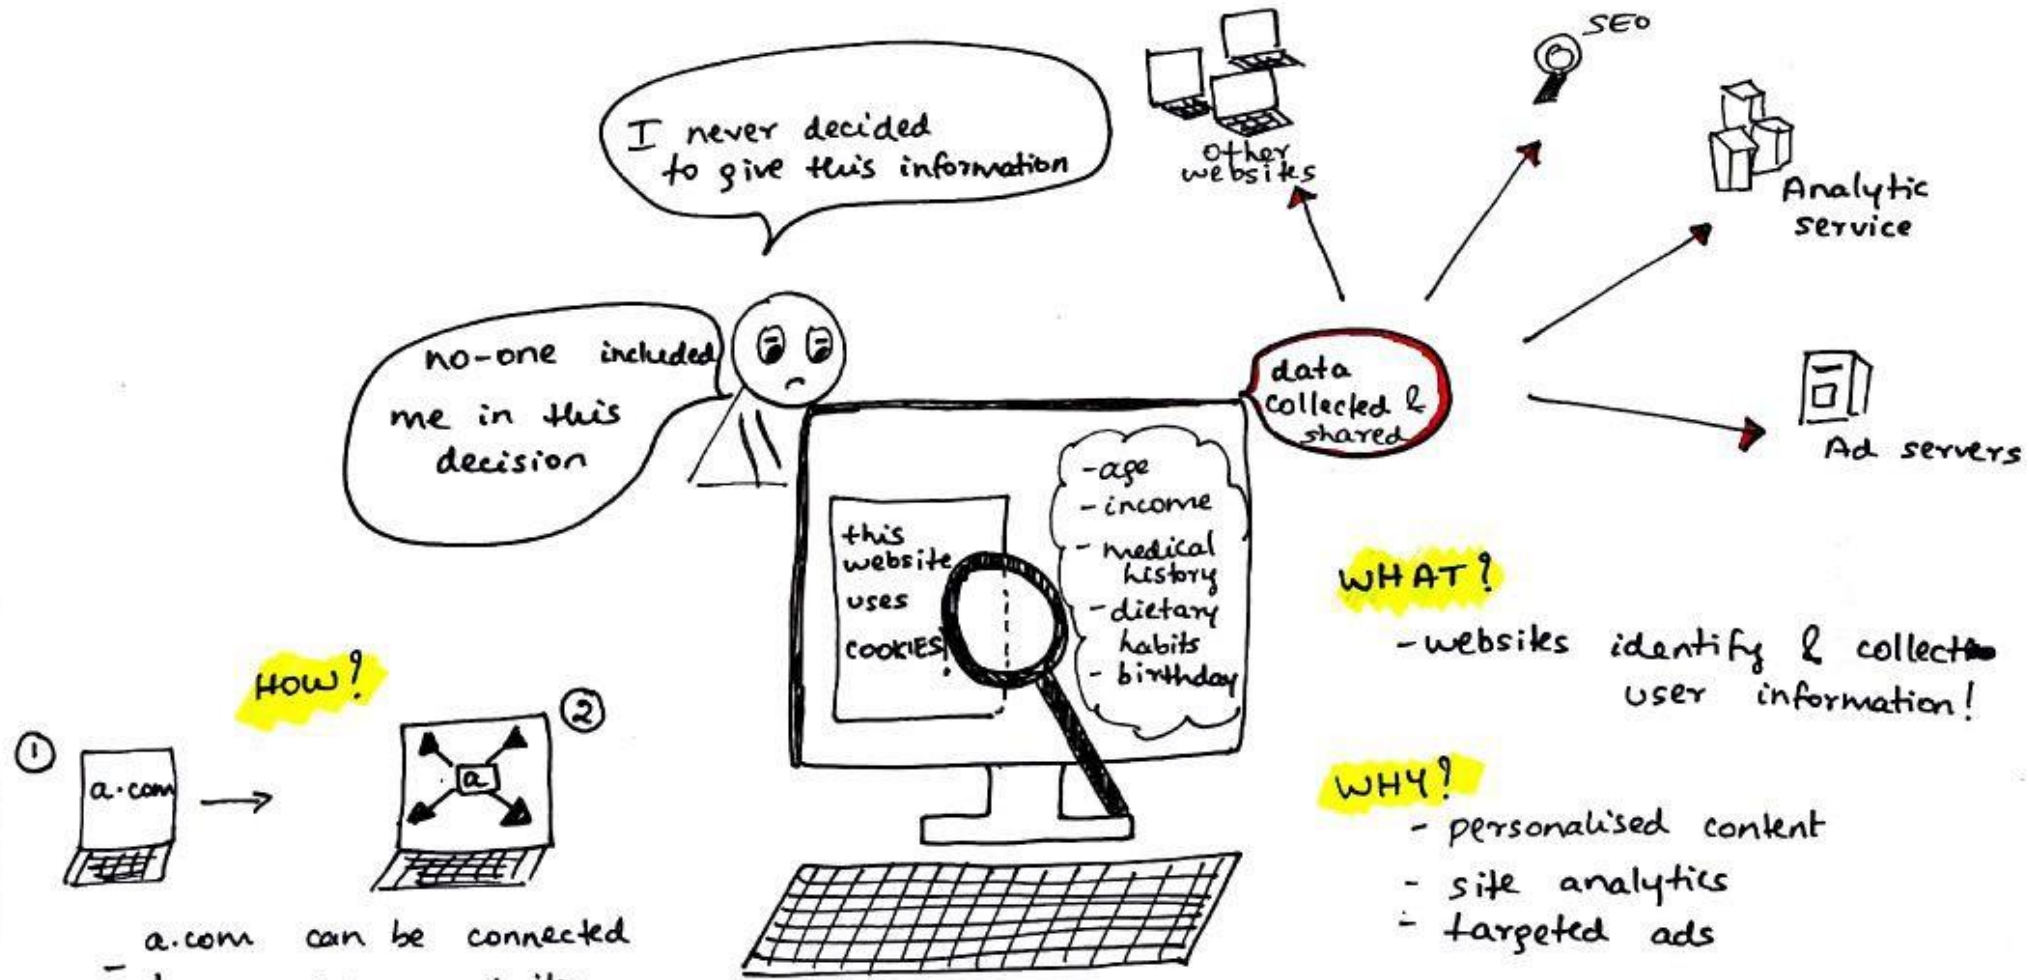 I never decided
to give this information
no-one included
me in this
decision
other
websites
SEO
Analytic
service
Ad servers
data
collected &
shared
this
website
uses
COOKIES!
-age
-income
- medical
history
- dietary
habits
- birthday
WHAT?
- websites identify & collect
user information!
WHY?
- personalised content
- site analytics
- targeted ads
HOW?
①
a.com
②
a
- a.com can be connected